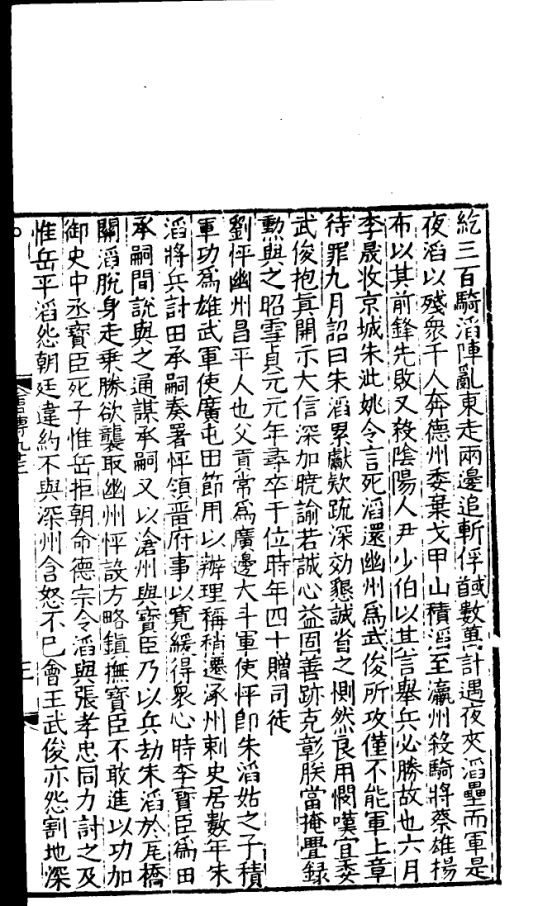 紇三百騎滔陣亂東走兩邊追斬俘馘數萬計遇夜夾滔壘而軍是
夜滔以殘衆千人奔德州委棄戈甲山積滔至瀛州殺騎將蔡雄揚
布以其前鋒先敗又殺陰陽人尹少伯以其言舉兵必勝故也六月
李晟收京城朱泚姚令言死滔還幽州爲武俊所攻僅不能軍上章
待罪九月詔曰朱滔累獻欵疏深効懇誠省之惻然良用憫嘆宜委
武俊抱眞開示大信深加曉諭若誠心益固善跡克彰朕當掩舋録
勲與之昭雪貞元元年尋卒于位時年四十贈司徒
劉怦幽州昌平人也父貢常爲廣邊大斗軍使怦卽朱滔姑之子積
軍功爲雄武軍使廣屯田節用以辦理稱稍遷涿州刺史居數年朱
滔將兵討田承嗣奏署怦領晉府事以寬緩得衆心時李寶臣爲田
承嗣間說與之通謀承嗣又以滄州與寶臣乃以兵劫朱滔於瓦橋
關滔脫身走乗勝欲襲取幽州怦設方略鎭撫寶臣不敢進以功加
御史中丞寶臣死子惟岳拒朝命德宗令滔與張孝忠同力討之及
惟岳平滔怨朝廷違約不與深州含怒不已會王武俊亦怨割地深
三